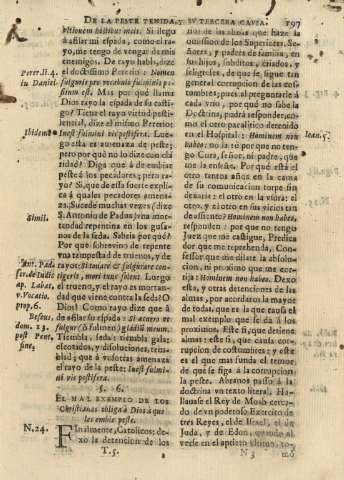 DE LA PESTE TEMIDA, Y SU TERCERA CAUSA. 197
ultionem hostibus meis. Si llegò
à afilar mi espada, como el rayo,
me tengo de vengar de mis
enemigos. De rayo habla, dize
el doctissimo Pererio: Nomen
fulguris pro vocabulo fulminis positum
est. Mas por què llama
Dios rayo la espada de su castigo?
Tiene el rayo virtud pestilencial,
dize el mismo Pererio:
Inest fulmini vis pestifera. Luego
esta es amenaza de peste;
pero por què no lo dize con claridad?
Diga que à de embiar
peste à los pecadores; pero rayo?
Si, que de essa suerte explica
à quales pecadores amenaza.
Sucede muchas vezes (dize
S. Antonio de Padua) vna mortandad
repentina en los gusanos
de la seda. Sabeis por què?
Por què sobrevino de repente
vna tempestad de truenos, y de
rayos: Si tonitus & fulgura contigerit,
mori tunc solent. Luego
el trueno, y el rayo es mortandad
que viene contra la seda? O
Dios! Como rayo dize que à
de afilar su espada: Si acuero ut
fulgur (ò Fulmen) gladium meum.
Tiembla, seda: tiembla gala:
escotados, y disoluciones, temblad;
que à vosotras amenaza
el rayo de la peste: Inest fulmini
vis pestifera.
§. 6.
EL MAL EXEMPLO DE LOS
Christianos obliga à Dios à que
les embie peste.
N.24. Finalmente, Catolicos: dexo
la detencion de los
T.5.
Perer. li. 4.
in Daniel.
Ibidem.
Simil.
Ant. Pad.
ap. Labat.
v. Vocatio.
prop. 6.
dom. 23.
post Pent.
nio de los chismes que haze la
omission de los Superiores, Señores,
y Padres de familia, en
sus hijos, subditos, criados, y
feligreses, de que se sigue tan
general corrupcion de las costumbres;
pues al preguntarle à
cada vno, por què no sabe la
Doctrina, podrà responder, como
el otro paralitico detenido
en el Hospital: Hominem non
habeo: no la sè por que no tengo
Cura, señor, ni padre, que
me la enseñe. Por què està el
otro tantos años en la cama
de su comunicacion torpe sin
dexarla: el otro en la vsura: el
otro, y el otro en sus vicios tan
de assiento? Hominem non habeo,
responden. Por què no tengo
Juez que me castigue, Predicador
que me reprehenda, Confessor
que me dilate la absolucion,
ni proximo que me corrija:
Hominem non habeo. Dexo
esta, y otras detenciones de las
almas, por acordaros la mayor
de todas, que es la que causa el
mal exemplo que se dà à los
proximos. Este si, que detiene
almas: este si, que causa corrupcion
de costumbres; y este
es el que mas funda el temor
de que se siga à la corrupcion
la peste. Abranos passo à la
doctrina vn texto literal. Hallavase
el Rey de Moab cercado
de vn poderoso Exercito de
tres Reyes, el de Israel, el de
Juda, y de Edon, quando al
verse en el aprieto vltimo, to-
N 3 mò
Ioan. 5.